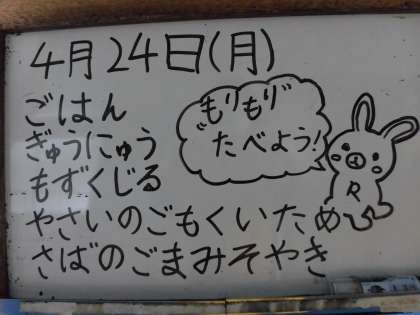 4月24日(月)
ごはん
ぎゅうにゅう
もずくじる
やさいのごもくいため
さばのごまみそやき
もりもり
たべよう!
R